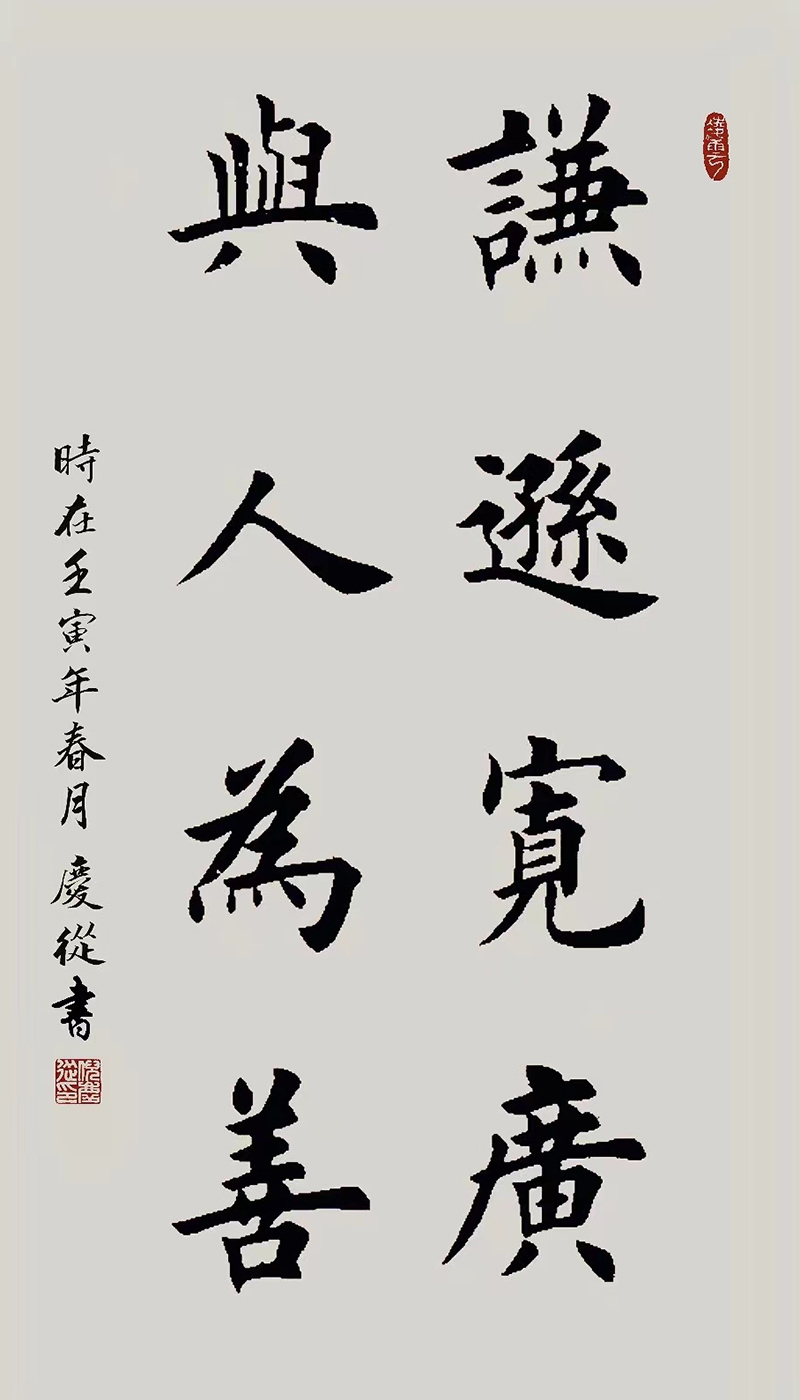 謙遜寬廣
與人為善
時在壬寅年春月 慶從書